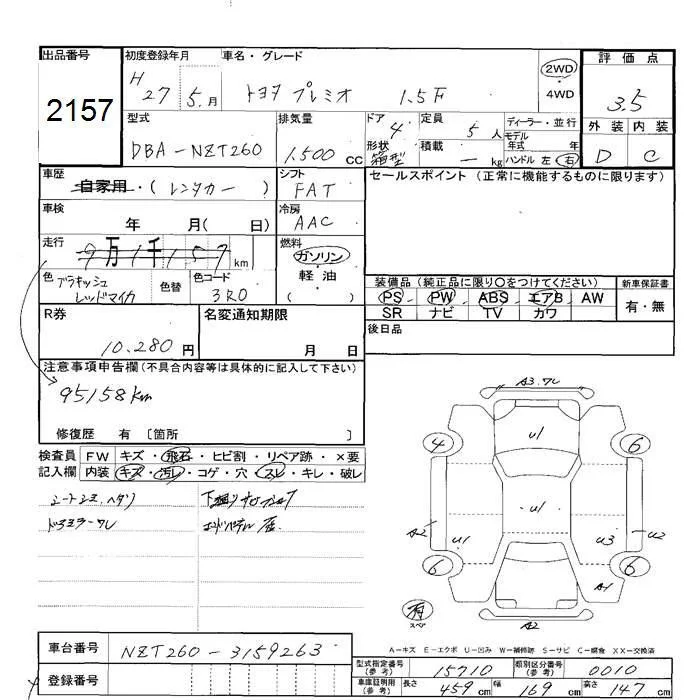 出品番号 初度登録年月 車名・グレード 評価点
2157 H 27年 5.月 トヨタ プレミオ 1.5F 2WD ・4WD 3.5
型式 排気量 ドア 4 定員 5人 ディーラー・並行 外装 内装
DBA-NZT260 1.500 CC 形状 箱型 積載 ー kg モデル年式 年式 ハンドル 左 右 D C
車歴 自家用・(レンタカー) シフト FAT セールスポイント (正常に機能するものに限ります)
車検 年 月( 日) 冷房 AAC
走行 9万1千157km 燃料 ガソリン
色 ブラキッシュレッドマイカ 色替 色コード 3R0 軽・油 ( )
装備品 (純正品に限り○をつけてください) 新車保証書
PS PW ABS エアB AW 有・無
SR ナビ TV カワ
R券 10.280円 名変通知期限 月 日 後日品
注意事項申告欄 (不具合内容等は具体的に記入して下さい)
95158km
修復歴 有 〔箇所 〕
検査員 FW キズ・飛石・ヒビ割・リペア跡・×要
記入欄 内装 キズ・汚レ・コゲ・穴・スレ・キレ・破レ
A3.7L
4 U1 6
A2 U1 U1 U3 U2
6 A1 6
有 スペア A2
A-キズ E-エクボ U-凹み W-補修跡 S-サビ C-腐食 XX-交換済
車台番号 NZT260-3159263
型式指定番号(参考) 15710 類別区分番号(参考) 0010
登録番号
車庫証明用(参考) 長さ 459cm 幅 169cm 高さ 147cm